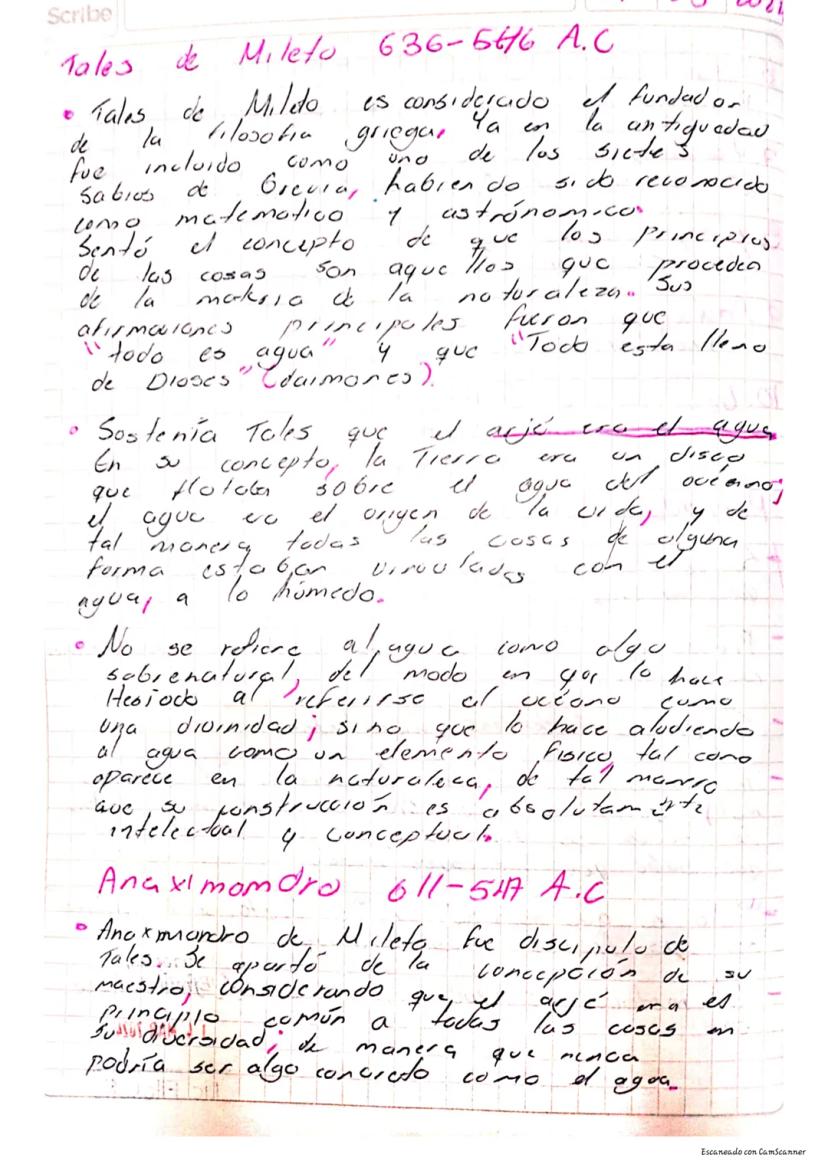 Scribe
Tales de Mileto 636-546 A.C
• Tales de Mileto es considerado el fundador
de la filosofía griega, Ya en la antiguedad
fue incluido como uno de los siete s
sabios de Grecia, habiendo sido reconocido
como matematico y astrónomico.
Sentó el concepto de que los principios
de las cosas son aquellos que proceden
de la materia de la naturaleza. Sus
afirmaciones principales fueron que
"todo es agua" y que "Todo esta lleno
de Dioses" (daimones).
• Sostenía Tales que el arjé era el agua
En su concepto, la Tierra era un disco
que flotaba sobre el agua del océano;
el agua era el origen de la vida, y de
tal manera todas las cosas de alguna
forma estaban vinculadas con el
agua, a lo húmedo.
• No se refiere al agua como algo
sobrenatural, del modo en que lo hace
Hesiodo al referirse al océano como
una divinidad; sino que lo hace aludiendo
al agua como un elemento físico, tal como
aparece en la naturaleza, de tal manera
que su construcción es absolutamente
intelectual y conceptual.
Anaximandro 611-547 A.C
• Anaximandro de Mileto fue discipulo de
Tales. Se apartó de la concepción de su
maestro, considerando que el arjé era el
principio común a todas las cosas en
su diversidad; de manera que nunca
podría ser algo concreto como el agua.
Escaneado con CamScanner